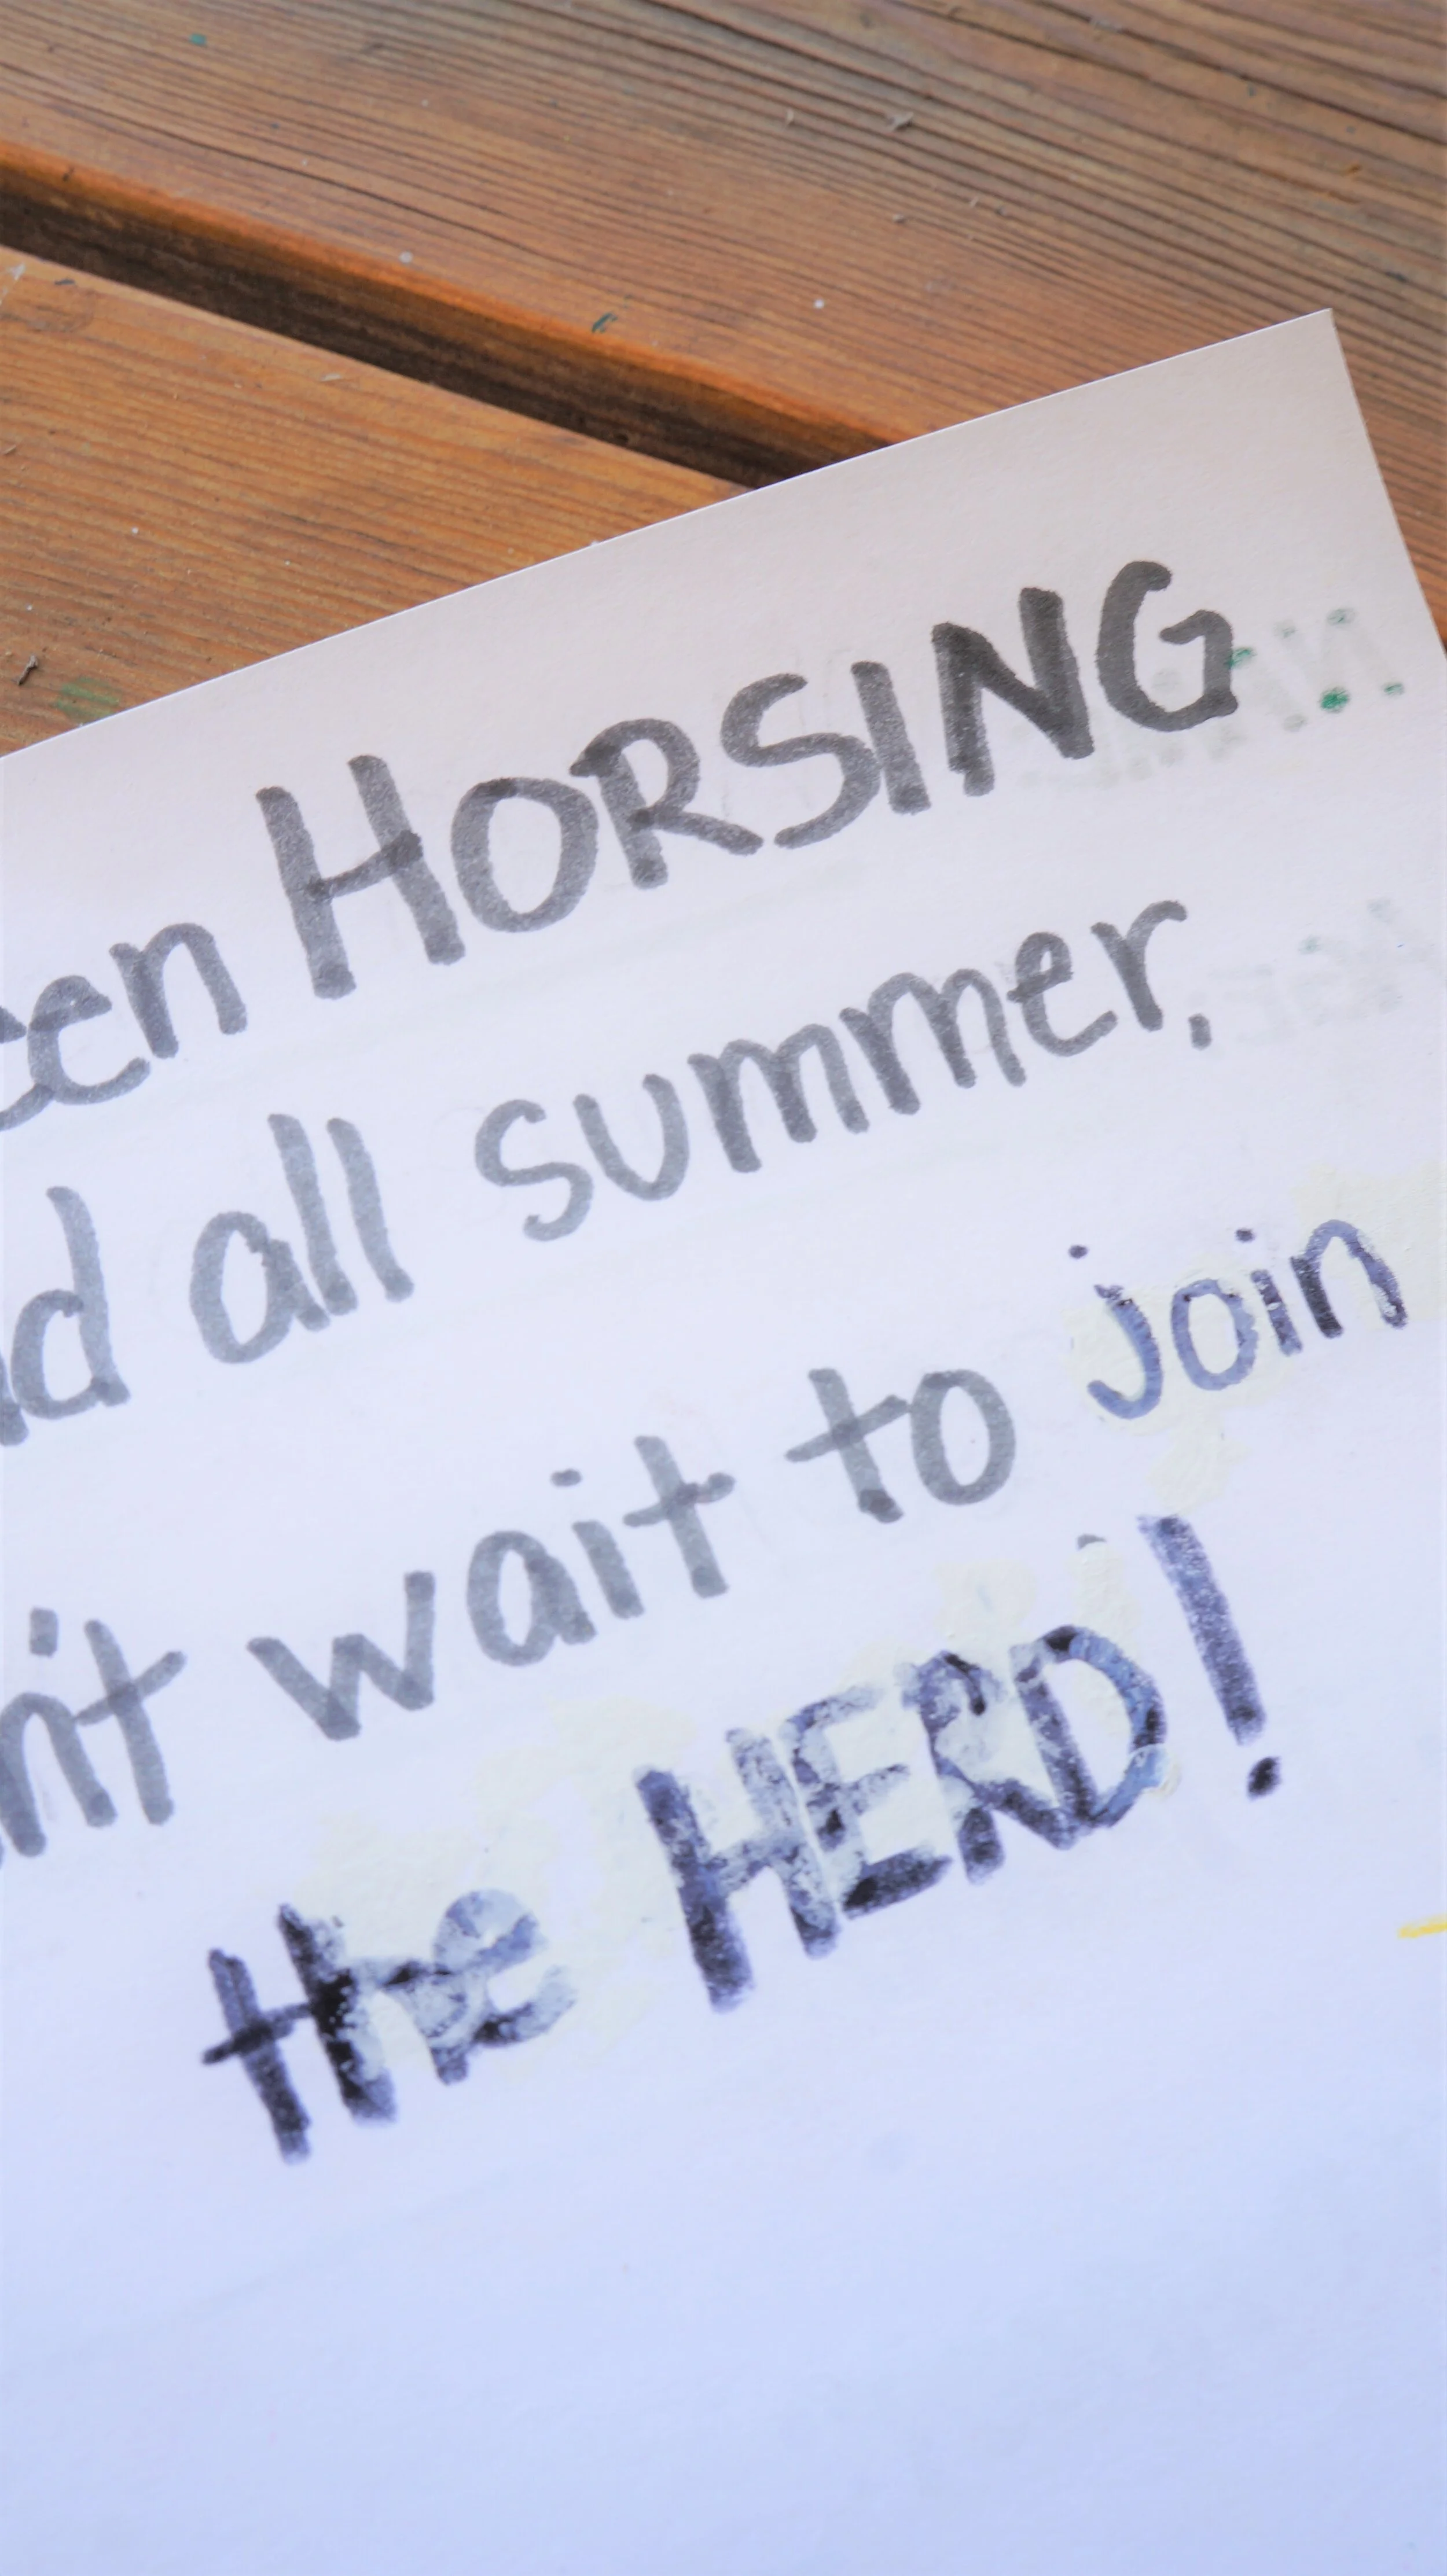 een HORSING
d all summer.
n't wait to join
the HERD!